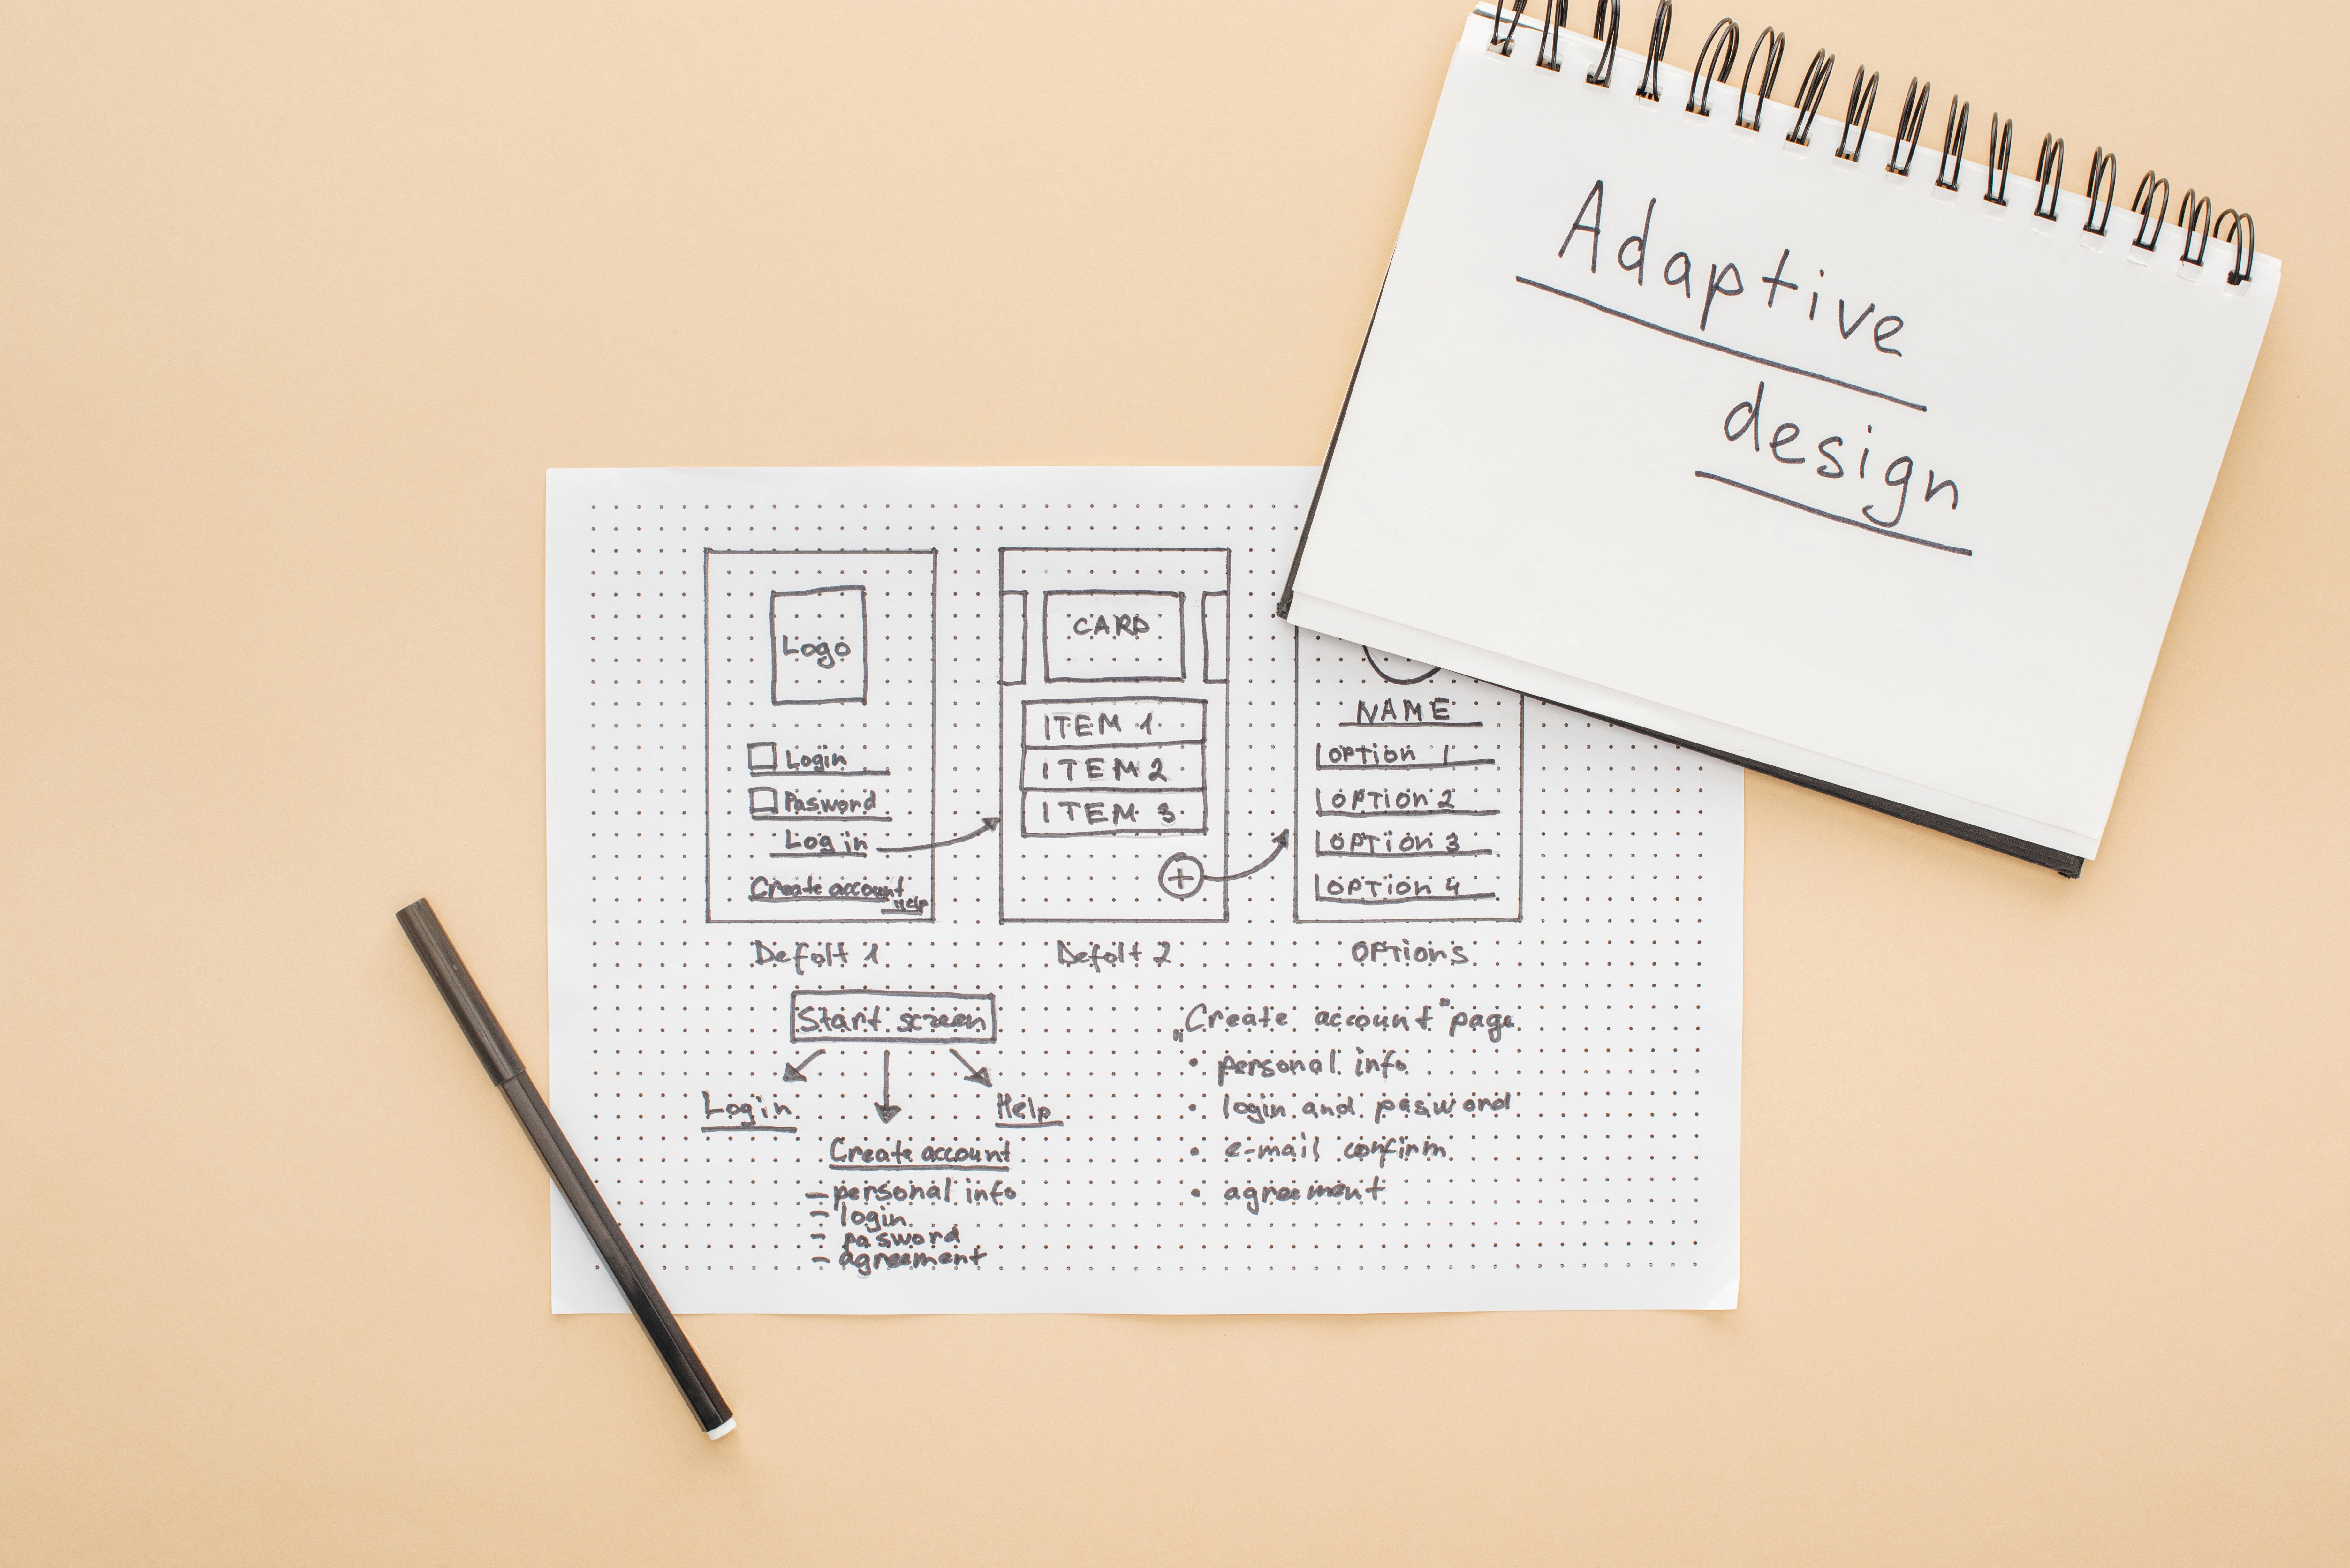 Adaptive
design
Logo
Login
Pasword
Log in
Create account
Help
Defolt 1
CARD
ITEM 1
ITEM 2
ITEM 3
+
Defolt 2
NAME
OPTION 1
OPTION 2
OPTION 3
OPTION 4
OPTIONS
Start screen
Login
Help
Create account
- personal info
- login
- pasword
- agreement
„Create account" page
• personal info
• login and pasword
• e-mail confirm
• agreement